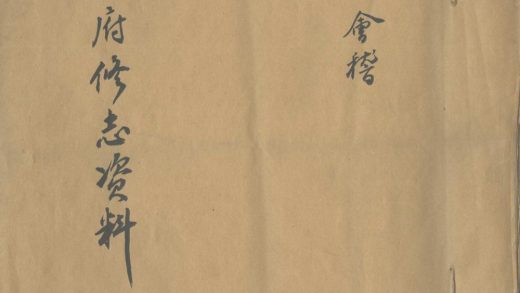 會稽
府修志资料